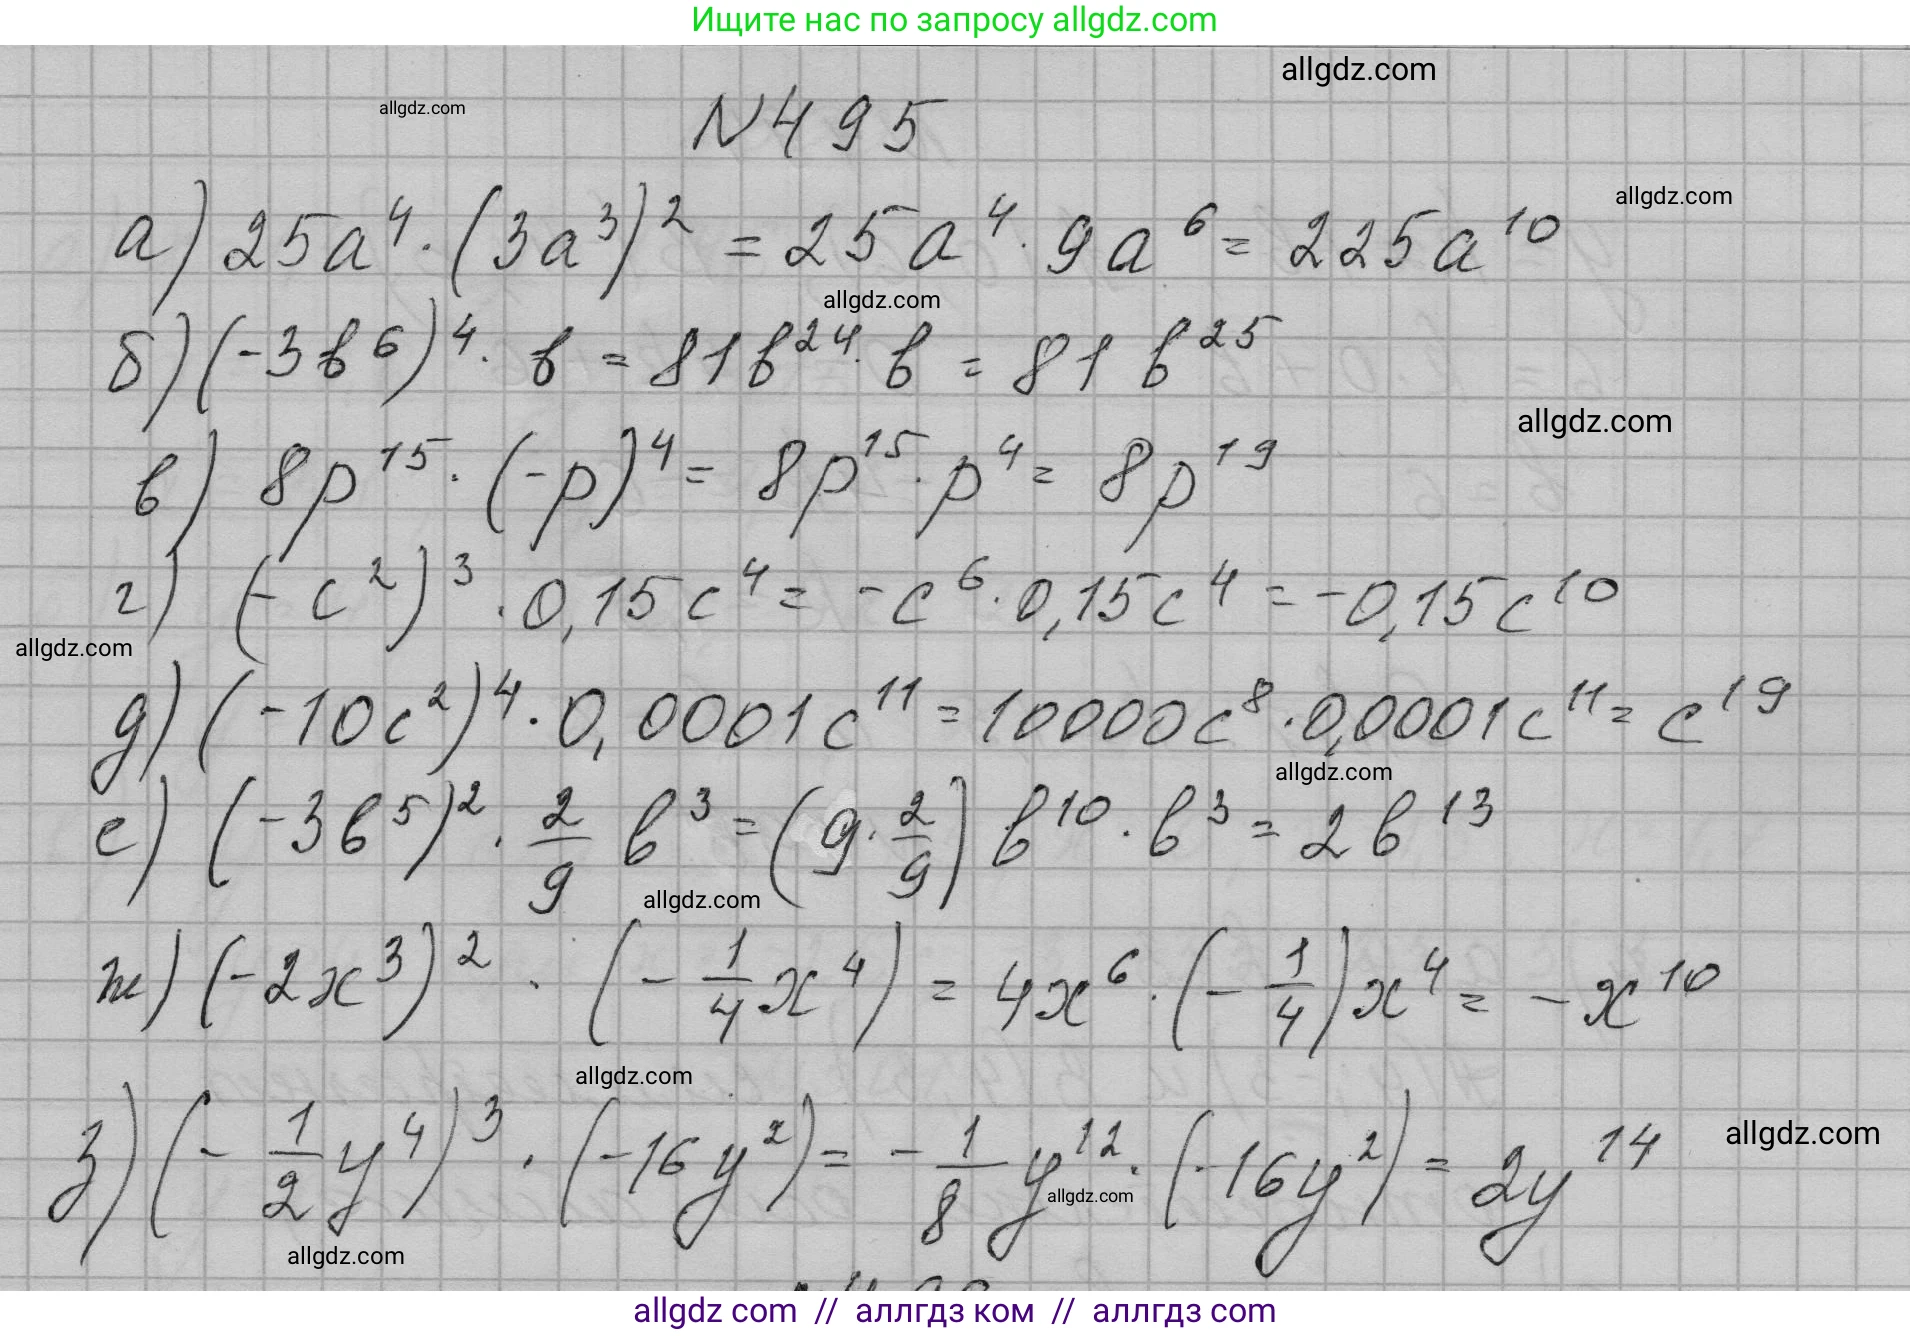 Ищите нас по запросу allgdz.com
allgdz.com
allgdz.com
N 495
allgdz.com
а) 25a⁴ · (3a³)² = 25a⁴ · 9a⁶ = 225a¹⁰
allgdz.com
б) (-3b⁶)⁴ · b = 81b²⁴ · b = 81b²⁵
allgdz.com
в) 8p¹⁵ · (-p)⁴ = 8p¹⁵ · p⁴ = 8p¹⁹
г) (-c²)³ · 0,15c⁴ = -c⁶ · 0,15c⁴ = -0,15c¹⁰
allgdz.com
д) (-10c²)⁴ · 0,0001c¹¹ = 10000c⁸ · 0,0001c¹¹ = c¹⁹
allgdz.com
е) (-3b⁵)² · 2/9 b³ = (9 · 2/9) b¹⁰ · b³ = 2b¹³
allgdz.com
ж) (-2x³)² · (-1/4 x⁴) = 4x⁶ · (-1/4) x⁴ = -x¹⁰
allgdz.com
з) (-1/2 y⁴)³ · (-16y²) = -1/8 y¹² · (-16y²) = 2y¹⁴
allgdz.com
allgdz.com
allgdz.com
allgdz com // аллгдз ком // аллгдз com